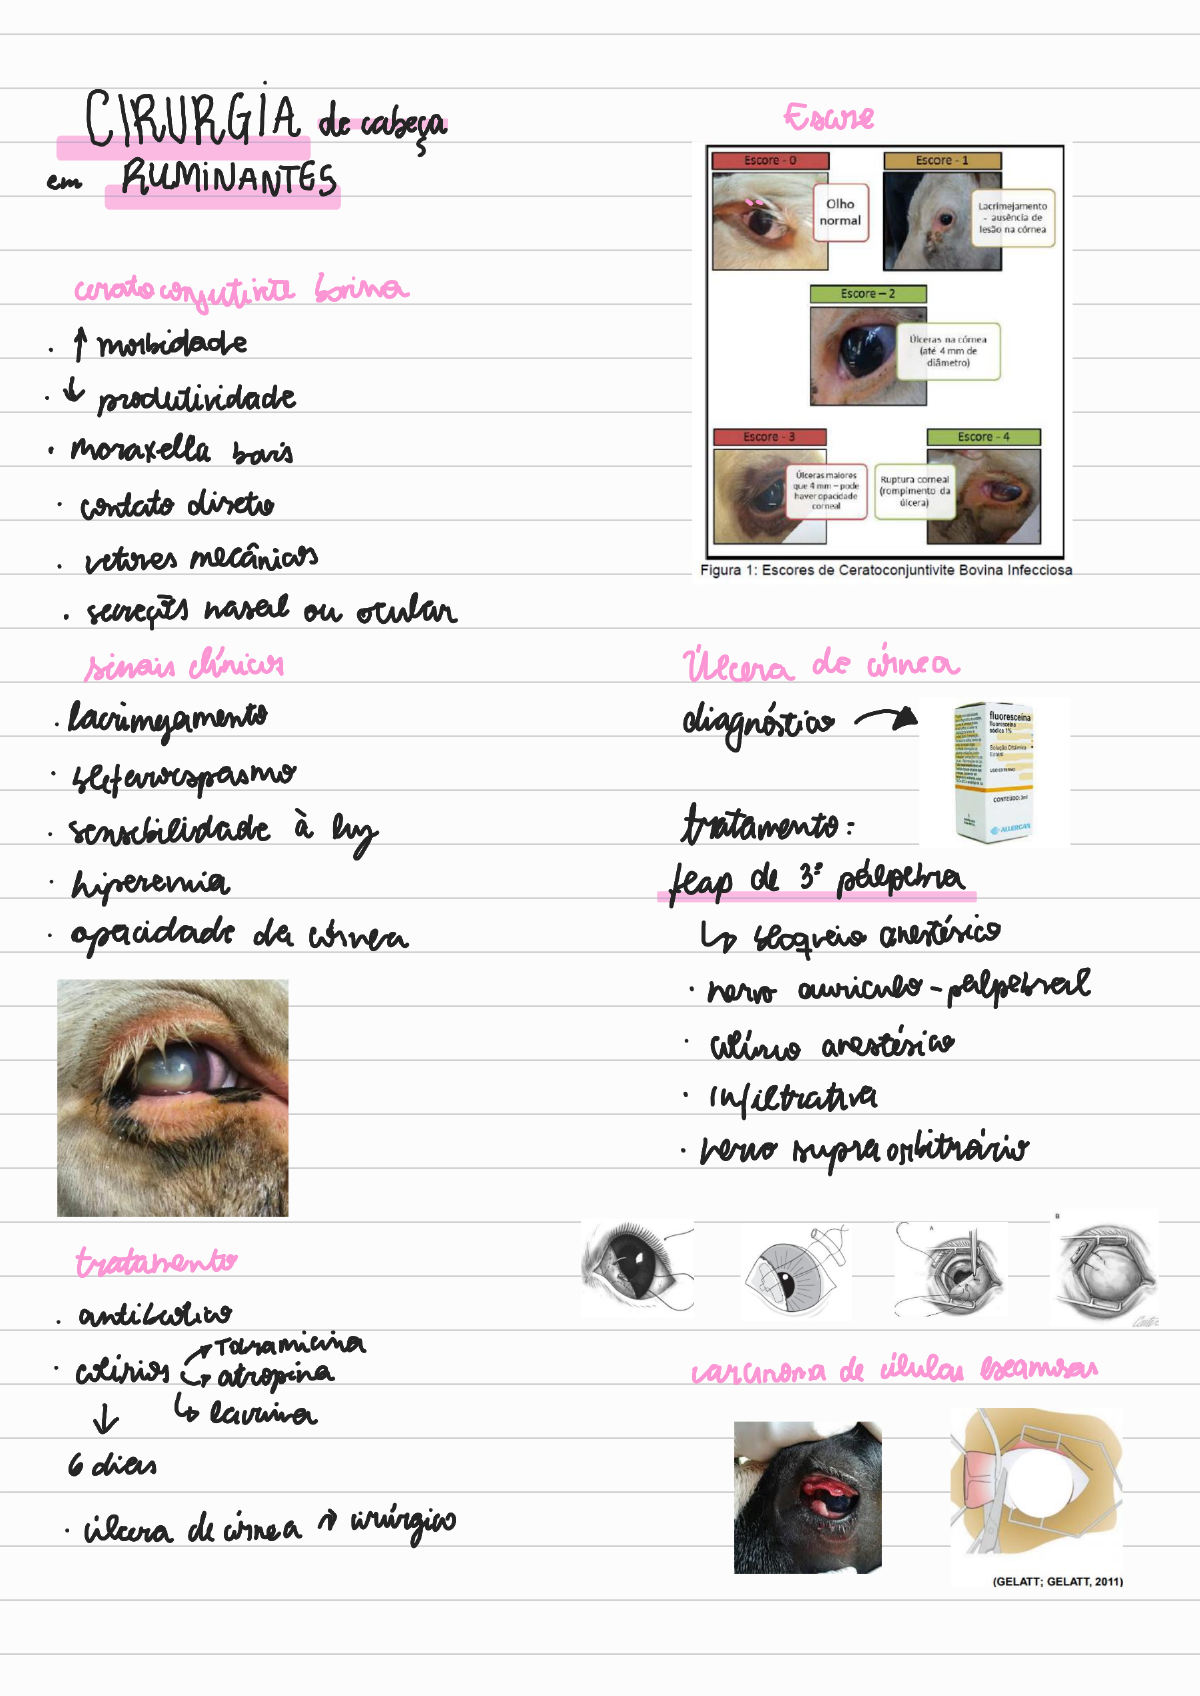 CIRURGIA de cabeça
em RUMINANTES
ceratoconjutivite bovina
· ↑ morbidade
· ↓ produtividade
· moraxella bovis
· contato direto
· vetores mecânicos
· secreções nasal ou ocular
sinais clínicos
· lacrimejamento
· blefaroespasmo
· sensibilidade à luz
· hiperemia
· opacidade da córnea
tratamento
· antibiótico
· colírios → Tobramicina
→ atropina
↳ lacrima
↓
6 dias
· úlcera de córnea → cirúrgico
Escore
Escore - 0
Olho
normal
Escore - 1
Lacrimejamento
- ausência de
lesão na córnea
Escore – 2
Úlceras na córnea
(até 4 mm de
diâmetro)
Escore - 3
Úlceras maiores
que 4 mm – pode
haver opacidade
corneal
Escore - 4
Ruptura corneal
(rompimento da
úlcera)
Figura 1: Escores de Ceratoconjuntivite Bovina Infecciosa
Úlcera de córnea
diagnóstico →
fluoresceína
fluoresceína
sódica 1%
Solução Oftálmica
Estéril
USO EXTERNO
CONTEÚDO: 3ml
ALLERGAN
tratamento:
fleap de 3ª pálpebra
↳ bloqueio anestésico
· nervo auriculo-palpebral
· colírio anestésico
· infiltrativa
· nervo supraorbitrário
A
B
carcinoma de células escamosas
(GELATT; GELATT, 2011)